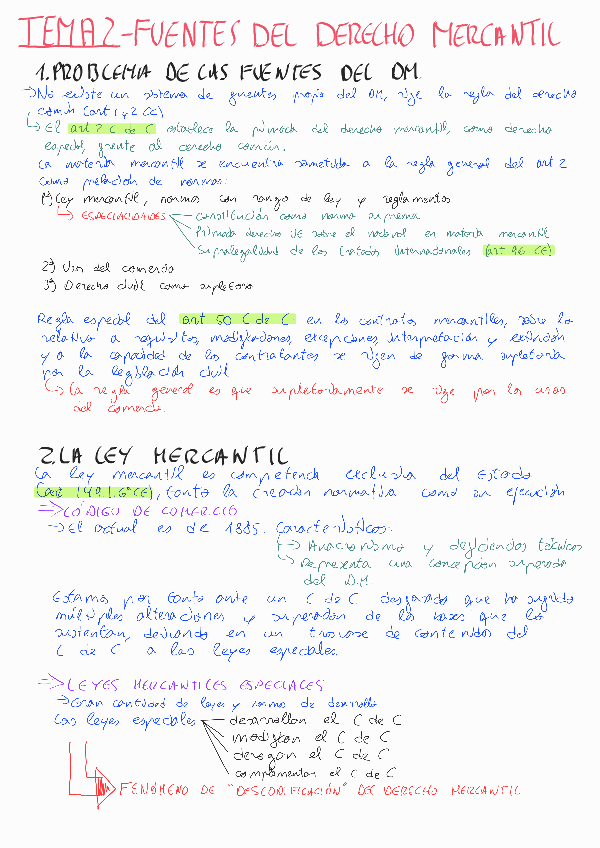 TEMA 2-FUENTES DEL DERECHO MERCANTIL
1. PROBLEMA DE LAS FUENTES DEL DM.
→No existe un sistema de fuentes propio del DM, rige la regla del derecho
común (art 1 y 2 CC)
↳ El art 2 C de C establece la primacía del derecho mercantil, como derecho
especial, frente al derecho común.
La materia mercantil se encuentra sometida a la regla general del art 2
como prelación de normas:
1º) Ley mercantil, normas con rango de ley y reglamentos
↳ ESPECIALIDADES — constitución como norma suprema
Primacía derecho UE sobre el nacional en materia mercantil
Supralegalidad de los tratados internacionales (art 96 CE)
2º) Usos del comercio
3º) Derecho civil como supletorio
Regla especial del art 50 C de C en los contratos mercantiles, sobre lo
relativo a requisitos, modificaciones, excepciones, interpretación y extinción
y a la capacidad de los contratantes se rigen de forma supletoria
por la legislación civil
↳ La regla general es que supletoriamente se rige por los usos
del comercio.
2. LA LEY MERCANTIL
La ley mercantil es competencia exclusiva del Estado
(art 149.1.6º CE), tanto la creación normativa como su ejecución
⇒ CÓDIGO DE COMERCIO
→ El actual es de 1885. Características:
→ Anacronismo y deficiencias técnicas
↳ Representa una concepción superada
del D.M.
Estamos por tanto ante un C de C desfasado que ha sufrido
múltiples alteraciones y superación de las bases que lo
sustentan, derivando en un trasvase de contenidos del
C de C a las leyes especiales.
⇒ LEYES MERCANTILES ESPECIALES
→ Gran cantidad de leyes y ramas de desarrollo
Las leyes especiales — desarrollan el C de C
modifican el C de C
derogan el C de C
complementan el C de C
FENÓMENO DE "DESCODIFICACIÓN" DEL DERECHO MERCANTIL